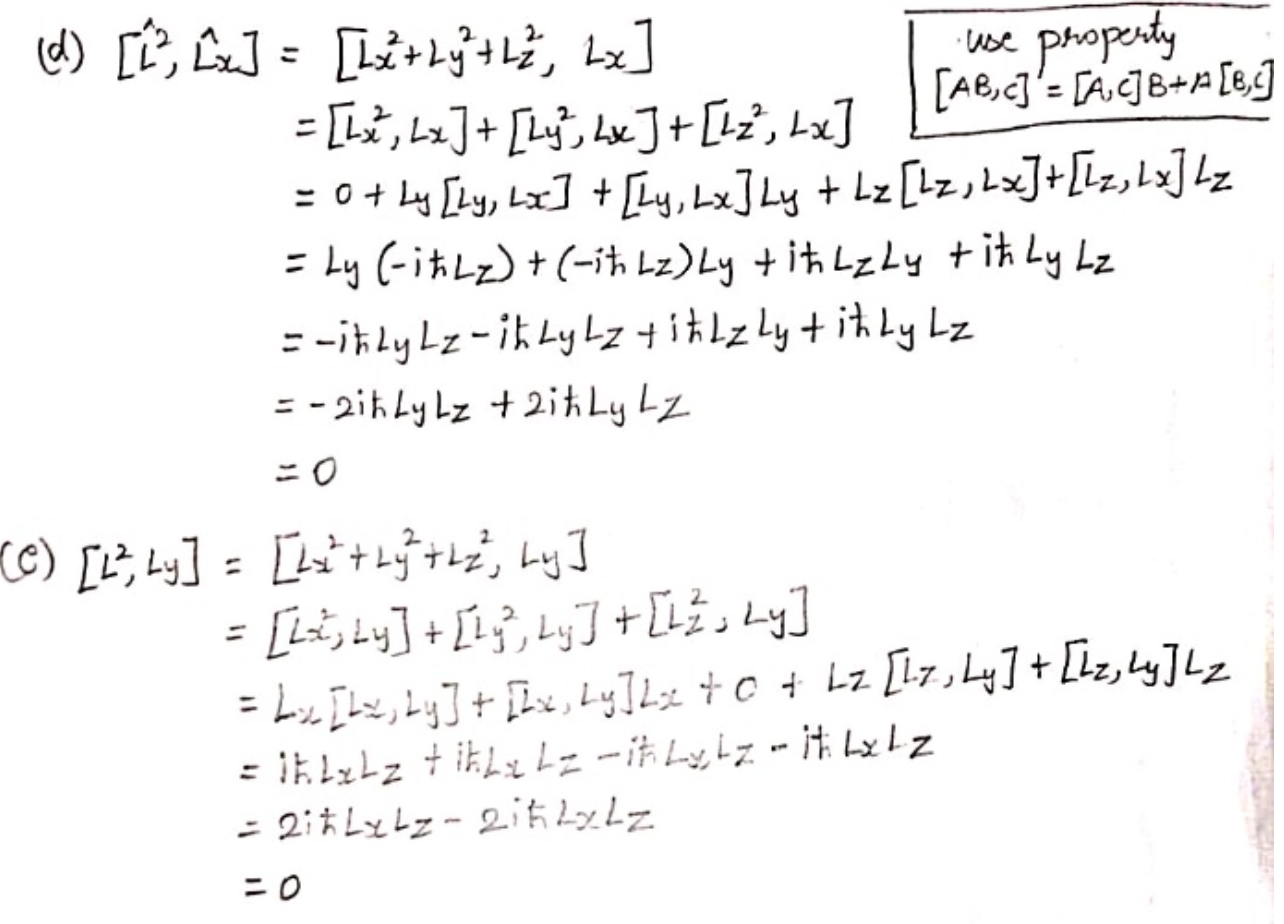 (d) [L̂², L̂x] = [Lx²+Ly²+Lz², Lx]
use property
[AB,C] = [A,C]B+A[B,C]
= [Lx², Lx] + [Ly², Lx] + [Lz², Lx]
= 0 + Ly [Ly, Lx] + [Ly, Lx] Ly + Lz [Lz, Lx] + [Lz, Lx] Lz
= Ly (-iħLz) + (-iħ Lz) Ly + iħ LzLy + iħ Ly Lz
= -iħLyLz - iħ LyLz + iħLzLy + iħLyLz
= -2iħLyLz + 2iħLyLz
= 0
(e) [L², Ly] = [Lx²+Ly²+Lz², Ly]
= [Lx², Ly] + [Ly², Ly] + [Lz², Ly]
= Lx [Lx, Ly] + [Lx, Ly] Lx + 0 + Lz [Lz, Ly] + [Lz, Ly] Lz
= iħLxLz + iħLxLz - iħLxLz - iħLxLz
= 2iħLxLz - 2iħLxLz
= 0